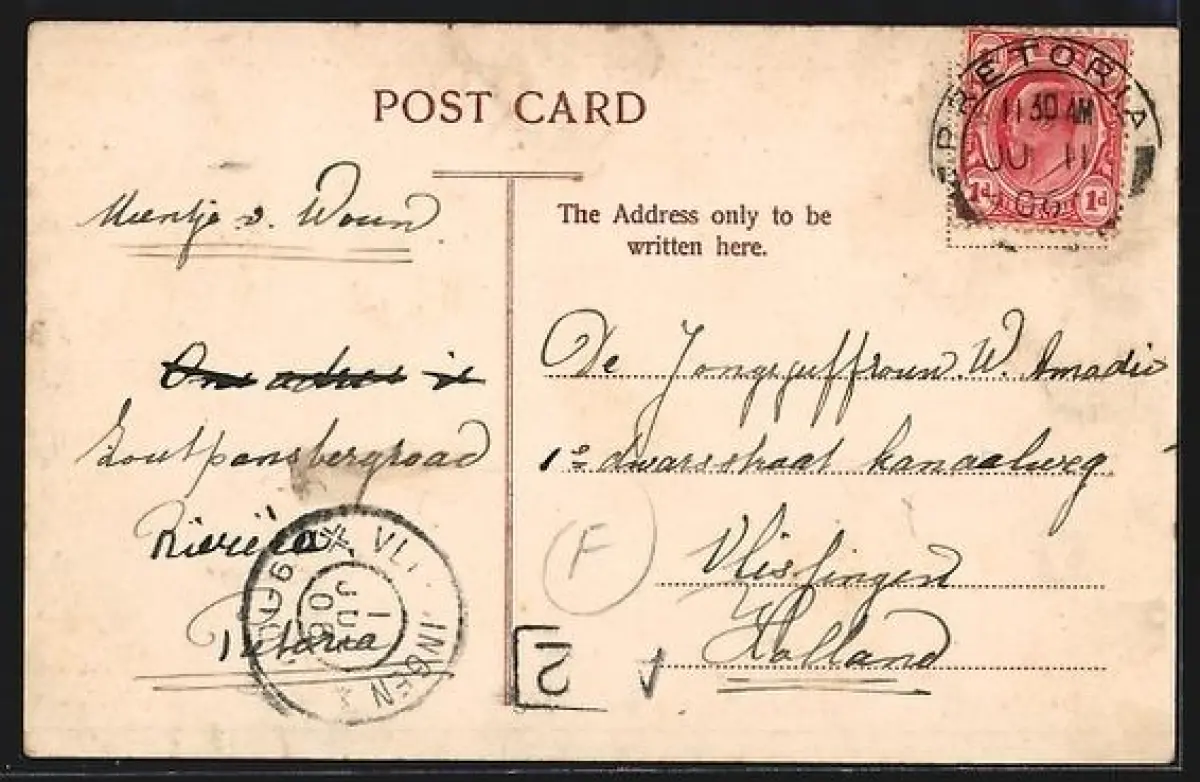 POST CARD
PRETORIA
11 30 AM
JU 11
06
1d 1d
The Address only to be
written here.
Mientje v. Woun
Ons adres is
Zoutpansbergroad
Rieriëra
Pretoria
De Jongejuffrouw. W. Amadio
1e dwarsstraat kanaalweg
Vlissingen
Holland
F
2
VL INGEN
JU
06